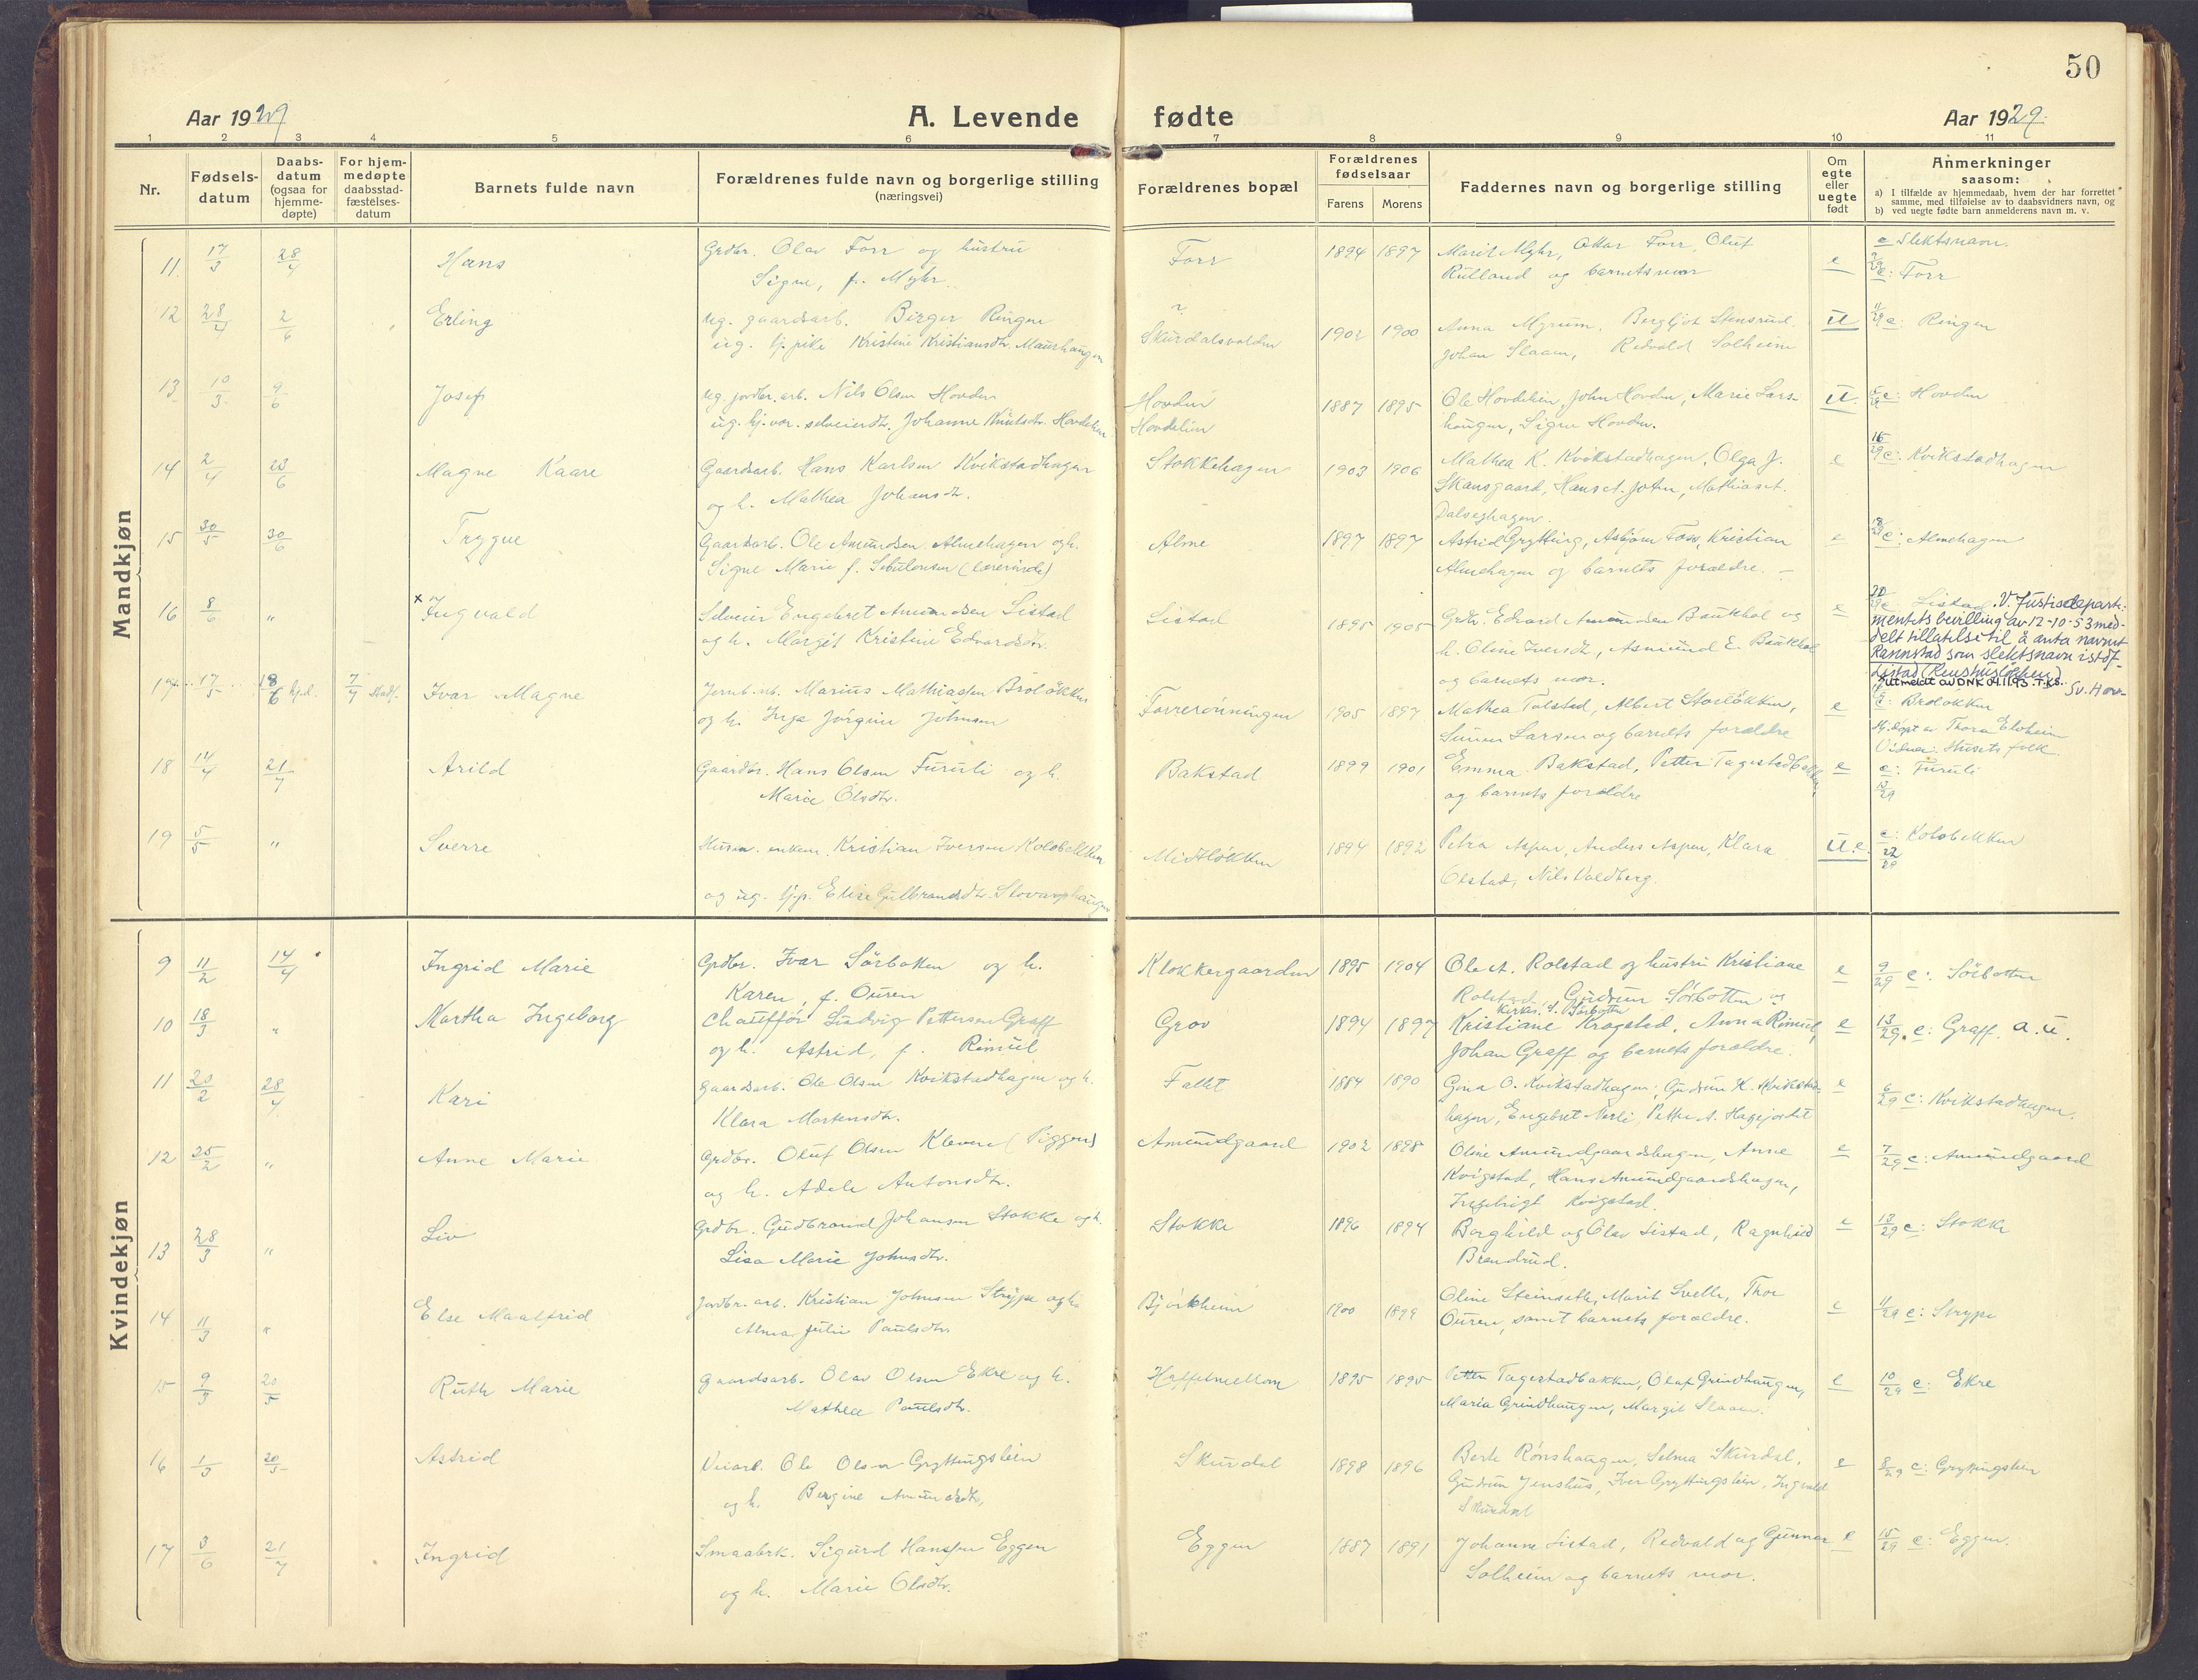 50
Aar 1929
A. Levende fødte
Aar 1929.
1 2 3 4 5 6 7 8 9 10 11
Nr.
Fødsels-
datum
Daabs-
datum
(ogsaa for
hjemme-
døpte)
For hjem-
medøpte
daabsstad-
fæstelses-
datum
Barnets fulde navn
Forældrenes fulde navn og borgerlige stilling
(næringsvei)
Forældrenes bopæl
Forældrenes
fødselsaar
Farens Morens
Faddernes navn og borgerlige stilling
Om
egte
eller
uegte
født
Anmerkninger
saasom:
a) I tilfælde av hjemmedaab, hvem der har forrettet
samme, med tilføielse av to daabsvidners navn, og
b) ved uegte fødte barn anmelderens navn m. v.
Mandkjøn
11. 17/3 28/4 Hans
Grdbr. Olav Forr og hustru
Signe, f. Myhr.
Forr 1894 1897
Marit Myhr, Ottar Forr, Oluf
Rulland og barnets mor
e
e Slektsnavn.
e: Forr
12 28/4 2/6 Erling
ug. gaardsarb. Birger Ringen
ug. tj. pike Kristine Kristiansdtr. Maurhaugen
Skurdalsvolden 1902 1900
Anna Myrum, Bergljot Stensrud.
Johan Slaaen, Redvald Solheim
u
e: Ringen
13 10/3 9/6 Josef
ug. jordbr. arb. Nils Olsen Hovden
ug. hj. vær. selveierdtr. Johanne Knutsdtr. Hovdelien
Hovden
Hovdelien
1887 1895
Ole Hovdelien, John Hovden, Marie Lars-
haugen, Signe Hovden.
u.
e: Hovden
14 2/4 23/6 Magne Kaare
Gaardsarb. Hans Karlsen Kvikstadhagen
og h. Mathea Johansdtr.
Stokkehagen 1903 1906
Mathea K. Kvikstadhagen, Olga J.
Skansgaard, Hans A. John, Mathias A.
Dalseghagen.
e
e: Kvikstadhagen
15 30/5 30/6 Trygve
Gaardsarb. Ole Amundsen Almehagen og h.
Signe Marie f. Sebulonsen (lærerinde)
Alme 1897 1897
Astrid Grytting, Asbjørn Foss, Kristian
Almehagen og barnets forældre. –
e
e: Almehagen
16 8/6 " x Ingvald
Selveier Engebret Amundsen Listad
og h. Margit Kristine Edvardsdtr.
Listad 1895 1905
Grdbr. Edvard Amundsen Baukhol og
h. Oline Iversdtr., Asmund E. Baukhol
og barnets mor.
e
e Listad. V. Justisdeparte-
mentets bevilling av 12-10-53 med-
delt tillatelse til å anta navnet
Rannstad som slektsnavn istdf.
Listad (Reushusløkken) Sv. Hov-
Utmeldt av DNK 04.11.93. T.K.S.
17. 17/5 18/6 hj.d. 7/7 stadf. Ivar Magne
Jernb. arb. Marius Mathiassen Broløkken
og h. Inga Jørgine Johnsen
Forrerønningen 1905 1897
Mathea Tolstad, Albert Storløkken,
Simen Larsen og barnets forældre
e
e: Broløkken
Hj.døpt av Thora Elvheim
Vidner: Husets folk.
18 14/4 21/7 Arild
Gaardbr. Hans Olsen Furuli og h.
Marie Olsdtr.
Bakstad 1899 1901
Emma Bakstad, Petter Tagestadbakken,
og barnets forældre
e
e: Furuli
19 5/5 " Sverre
Husm. enkem. Kristian Iversen Kolobekken
og ug. tj.p. Elise Gulbrandsdtr. Slovarphaugen
Midtløkken 1894 1892
Petra Aspen, Anders Aspen, Klara
Olstad, Nils Voldberg.
u. e.
e: Kolobekken
22/29
Kvindekjøn
9 11/2 14/4 Ingrid Marie
Grdbr. Ivar Sørbotten og h.
Karen, f. Ouren
Klokkergaarden 1895 1904
Ole A. Rolstad og hustru Kristiane
Rolstad. Gudrun Sørbotten og
Kirkes. I. Sørbotten
e
9/29 e: Sørbotten
10 18/3 " Martha Ingeborg
Chauffør Ludvig Pettersen Graff
og h. Astrid, f. Rimul
Grov 1894 1897
Kristiane Krogstad, Anna Rimul,
Johan Graff og barnets forældre.
e
13/29. e: Graff. a. u.
11 20/2 28/4 Kari
Gaardsarb. Ole Olsen Kvikstadhagen og h.
Klara Mortensdtr.
Fallet 1884 1890
Gina O. Kvikstadhagen, Gudrun K. Kvikstad-
hagen, Engebret Nerli, Petter A. Hagejordet
e
6/29 e: Kvikstadhagen.
12 25/2 " Anne Marie
Grdbr. Oluf Olsen Kleven (Piggen)
og h. Adele Antonsdtr.
Amundgaard 1902 1898
Oline Amundgaardshagen, Anne
Kvigstad, Hans Amundgaardshagen,
Ingebrigt Kvigstad.
e
7/29 e: Amundgaard
13 28/3 " Liv
Grdbr. Gudbrand Johansen Stokke og h.
Lisa Marie Johnsdtr.
Stokke 1896 1894
Borghild og Olav Listad, Ragnhild
Brendrud.
e
12/29 e: Stokke
14 11/3 " Else Maalfrid
Jordbr. arb. Kristian Johnsen Strype og h.
Alma Julie Paulsdtr.
Bjørkheim 1900 1899
Oline Steinseth, Marit Svelle, Thor
Ouren, samt barnets forældre.
e
11/29 e: Strype
15 9/3 20/5 Ruth Marie
Gaardsarb. Olav Olsen Ekre og h.
Mathea Paulsdtr.
Haffelmellom 1895 1895
Petter Tagestadbakken, Olaf Grindhaugen,
Maria Grindhaugen, Margit Slaaen.
e
10/29 e: Ekre
16 1/3 20/5 Astrid
Veiarb. Ole Olsen Gryttingslien
og h. Bergine Amundsdtr.
Skurdal 1898 1896
Berte Rønshaugen, Selma Skurdal,
Gudrun Jenshus, Iver Gryttingslien, Ingvald
Skurdal
e
8/29 e: Gryttingslien
17 3/6 21/7 Ingrid
Smaabrk. Sigurd Hanssen Eggen
og h. Marie Olsdtr.
Eggen 1887 1891
Johanne Listad, Redvald og Gunnar
Solheim og barnets mor.
e
15/29 e: Eggen.